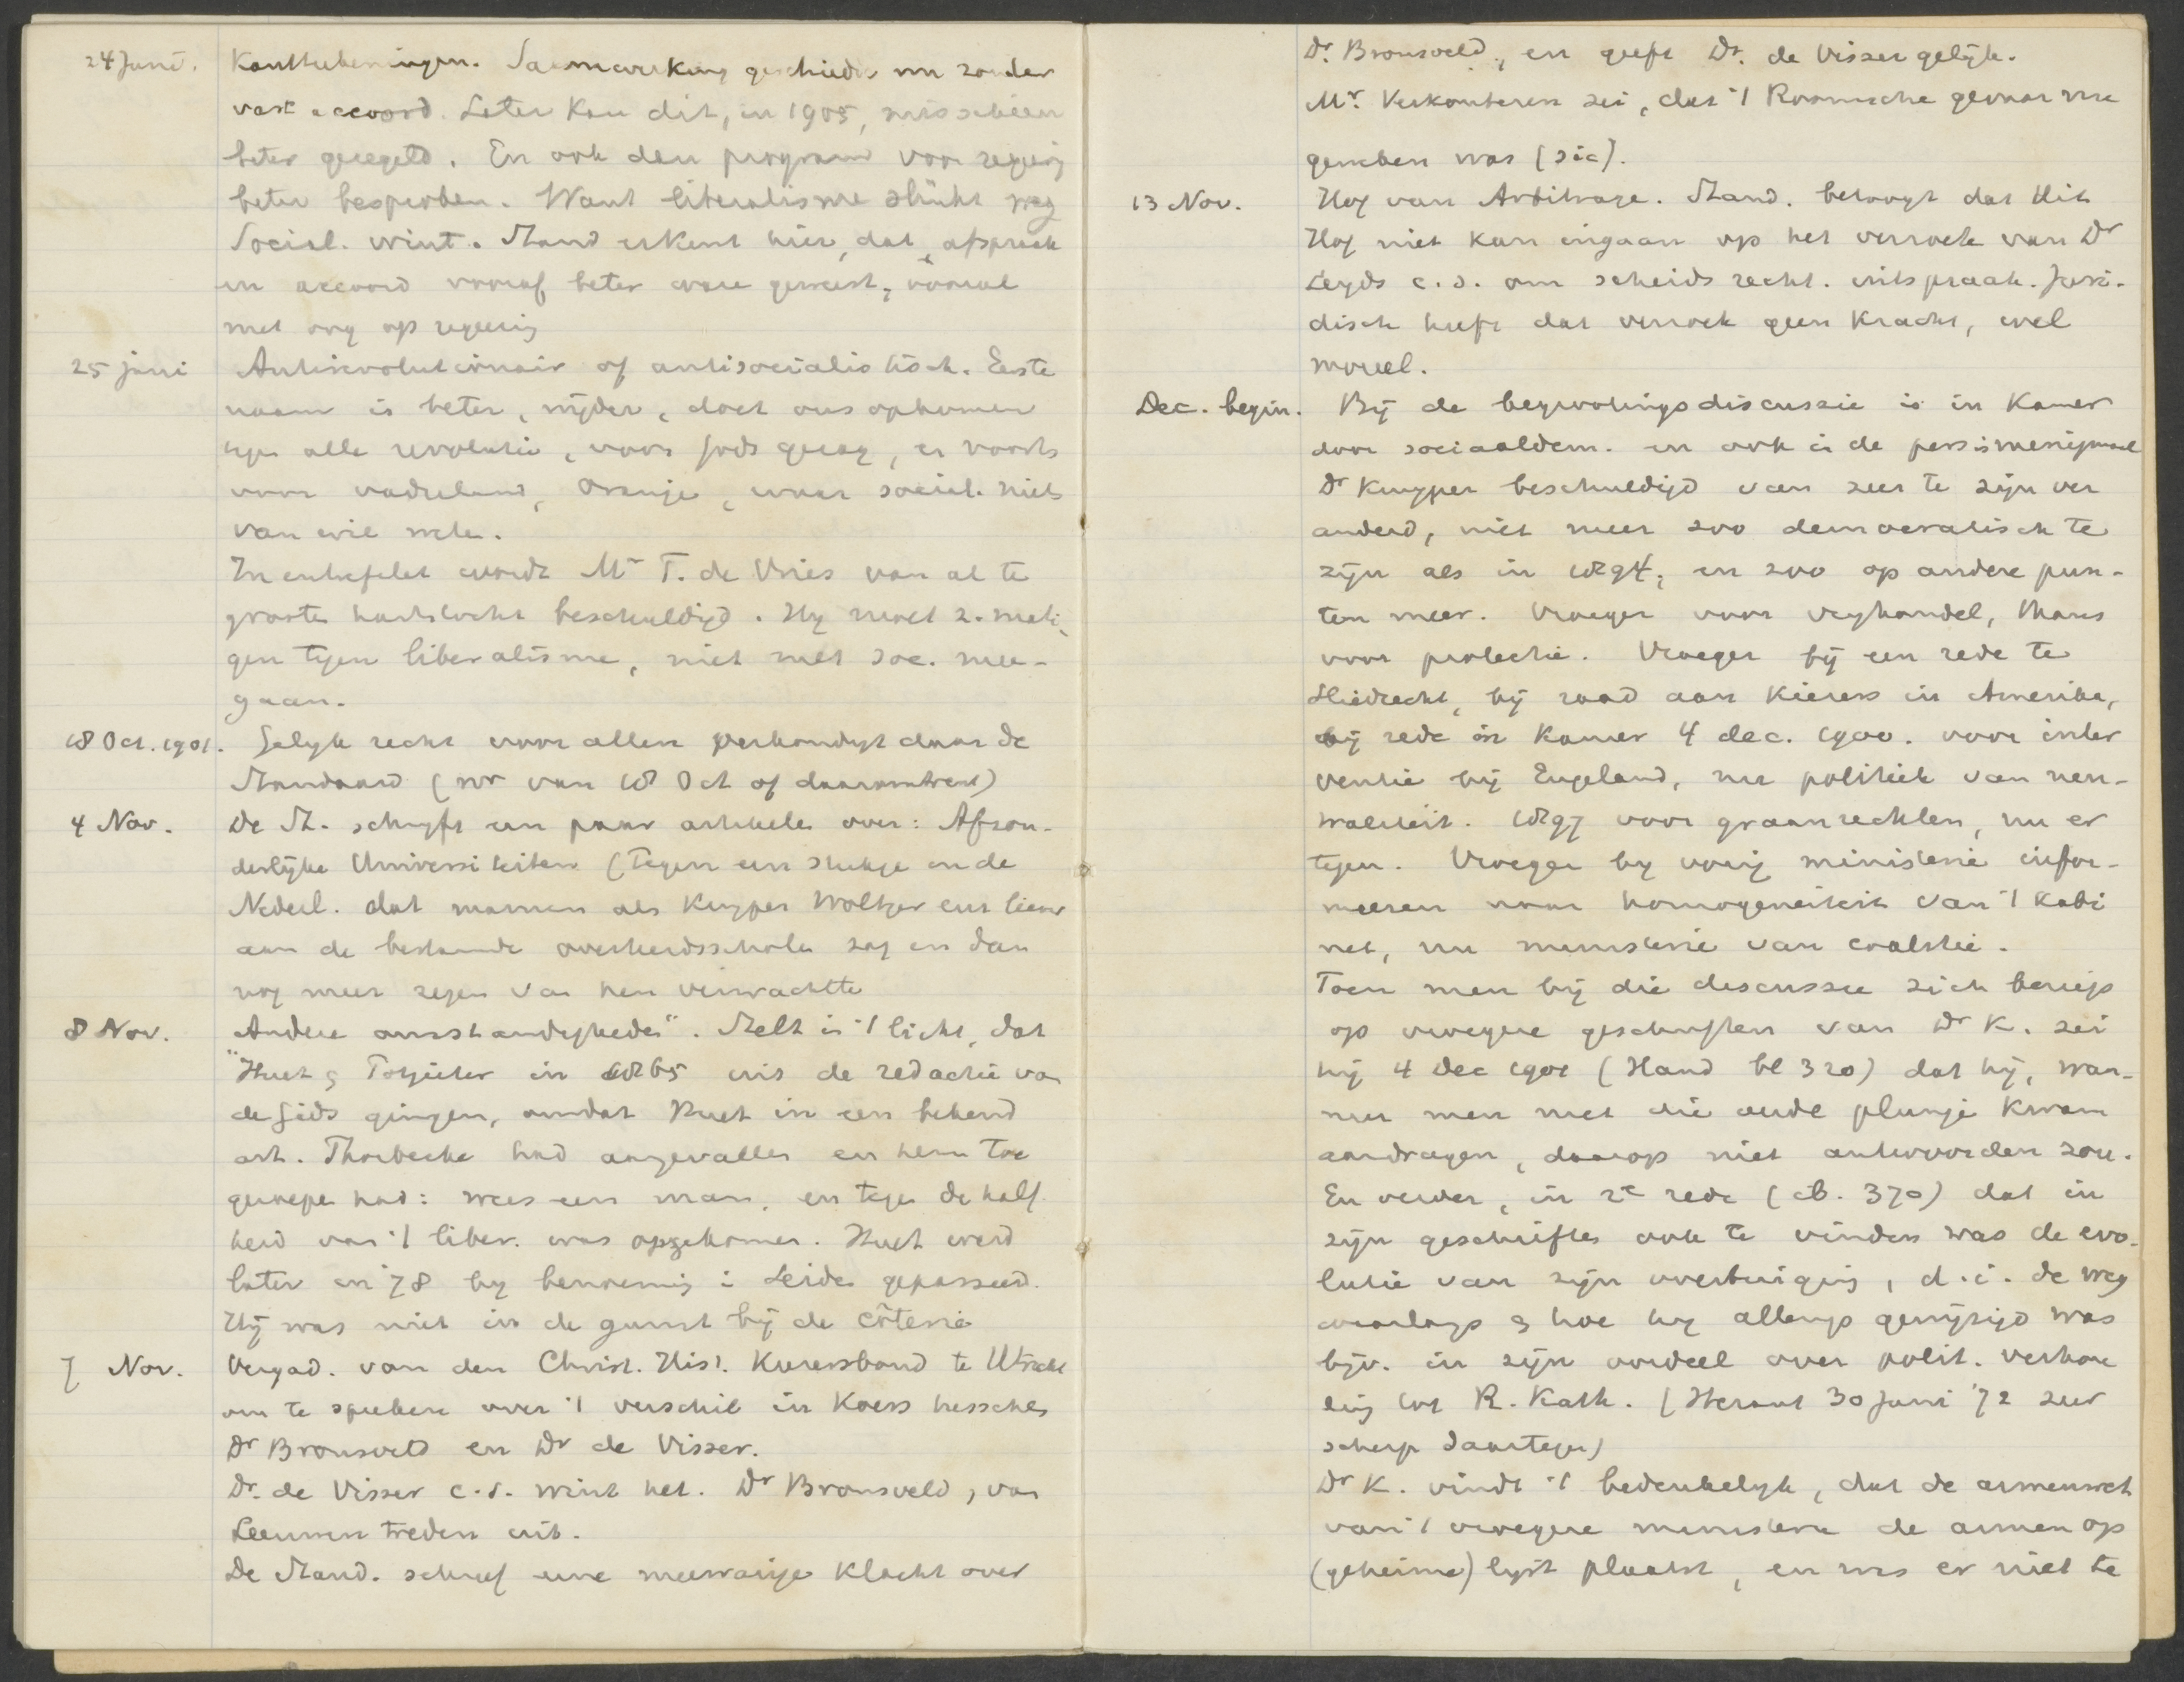 24 Juni. Kanttekeningen. Saamwerking geschiedt nu zonder
vast accoord. Later kan dit, in 1905, misschien
beter geregeld. En ook den program voor regeerig
beter besproken. Want liberalisme slinkt weg
Social. wint. Stand erkent hier, dat afspraak
en accoord vooraf beter ware geweest, vooral
met oog op regeerig
25 juni Antirevolutionair of antisocialistisch. Eerste
naam is beter, wijder, doet ons opkomen
tegen alle revolutie, voor Gods gezag, en voorts
voor vaderland, Oranje, waar social. niets
van wil weten.
In entrefilet wordt Mr T. de Vries van al te
groote hartstocht beschuldigd. Hij moet z. mati-
gen tegen liberalisme, niet met soc. mee-
gaan.
18 Oct. 1901. Gelijk recht voor allen verkondigt daar de
Standaard (nr van 18 Oct of daaromtrent)
4 Nov. De St. schrijft een paar artikelen over: Afzon-
derlijke Universiteiten (tegen een stukje in de
Nederl. dat mannen als Kuyper Woltjer liever
aan de bestaande overheidsscholen zag en dan
nog meer zegen van hen verwachtte
8 Nov. Andere omstandigheden". Stelt in 't licht, dat
"Huet & Potgieter in 1865 uit de redactie van
de Gids gingen, omdat Huet in een bekend
art. Thorbecke had aangevallen en hem toe
geroepen had: wees een man, en tegen de half-
heid van 't liber. was opgekomen. Huet werd
later in '78 bij benoeming i Leiden gepasseerd.
Hij was niet in de gunst bij de côterie
7 Nov. Vergad. van den Christ. Hist. Kiezersbond te Utrecht
om te spreken over 't verschil in Koers tusschen
Dr Bronsveld en Dr de Visser.
Dr. de Visser c.s. wint het. Dr Bronsveld, van
Leeuwen treden uit.
De Stand. schreef eene meewarige klacht over
Dr. Bronsveld, en geeft Dr. de Visser gelijk.
Mr. Verkouteren zei, dat 't Roomsche gevaar nu
geweken was (sic).
13 Nov. Hof van Arbitrage. Stand. betoogt dat dit
Hof niet kan ingaan op het verzoek van Dr
Leyds c.s. om scheidsrecht. uitspraak. Juri-
disch heeft dat verzoek geen kracht, wel
moreel.
Dec. begin. Bij de begrootingsdiscussie is in Kamer
door sociaaldem. en ook in de pers is menigmaal
Dr Kuyper beschuldigd van zeer te zijn ver
anderd, niet meer zoo democratisch te
zijn als in 1894, en zoo op andere pun-
ten meer. Vroeger voor vrijhandel, thans
voor protectie. Vroeger bij een rede te
Sliedrecht, bij raad aan Kiezers in Amerika,
bij rede in Kamer 4 dec. 1900. voor inter
ventie bij Engeland, nu politiek van neu-
traliteit. 1897 voor graanrechten, nu er
tegen. Vroeger bij vorig ministerie infor-
meeren naar homogeneiteit van 't kabi
net, nu ministerie van coalitie.
Toen men bij die discussie zich beriep
op vroegere geschriften van Dr K. zei
hij 4 Dec 1901 (Hand bl 320) dat hij, wan-
neer men met die oude plunje kwam
aandragen, daarop niet antwoorden zou.
En verder, in 2e rede (ib. 370) dat in
zijn geschriften ook te vinden was de evo-
lutie van zijn overtuiging, d.i. de weg
waarlangs & hoe hij allengs gewijzigd was
bijv. in zijn oordeel over polit. verhou
ding tot R. Kath. (Heraut 30 Juni '72 zeer
scherp daartegen)
Dr K. vindt 't bedenkelijk, dat de armenwet
van 't vroegere ministerie de armen op
(geheime) lijst plaatst, en was er niet te